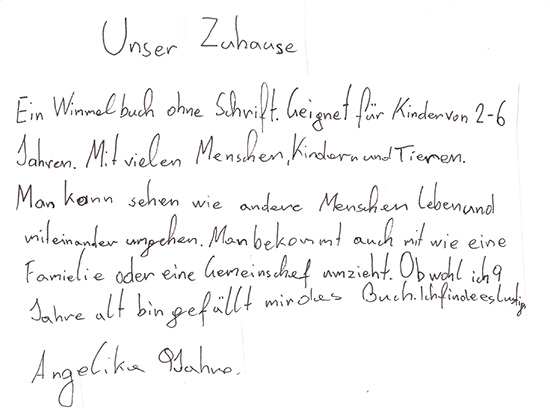 Unser Zuhause
Ein Wimmelbuch ohne Schrift. Geignet für Kinder von 2-6
Jahren. Mit vielen Menschen, Kindern und Tieren.
Man kann sehen wie andere Menschen leben und
miteinander umgehen. Man bekommt auch mit wie eine
Familie oder eine Gemeinschef umzieht. Obwohl ich 9
Jahre alt bin gefällt mir des Buch. Ich finde es lustig.
Angelika 9 Jahre.